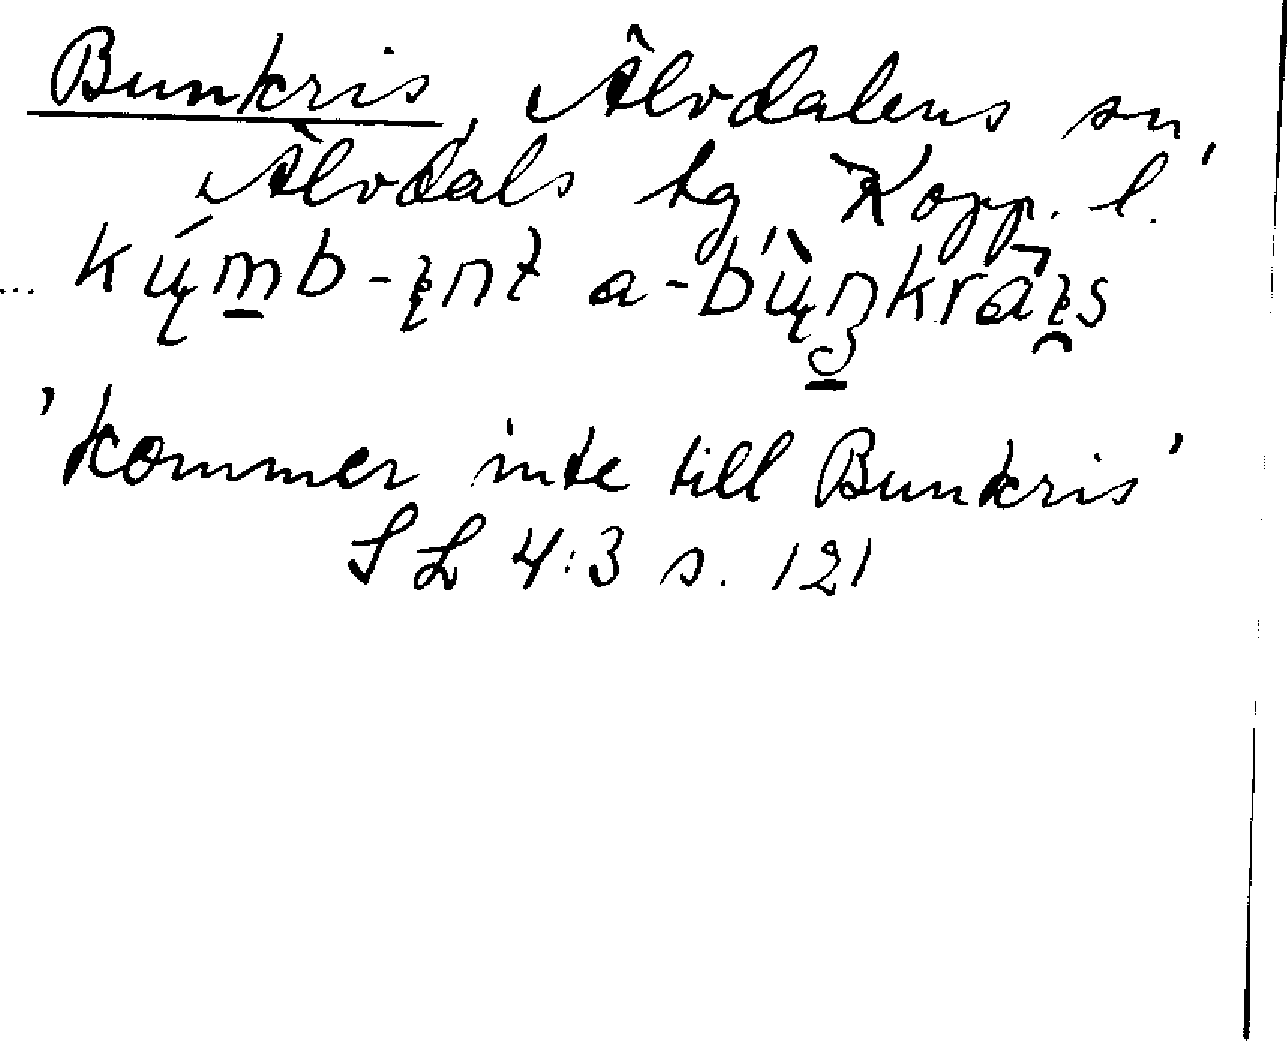 Bunkris, Älvdalens sn,
Älvdals tg, Kopp. l.
... kų́m̱b-ı̨nt a-bų̀ŋkràı̨s
'kommer inte till Bunkris'
SL 4:3 s. 121